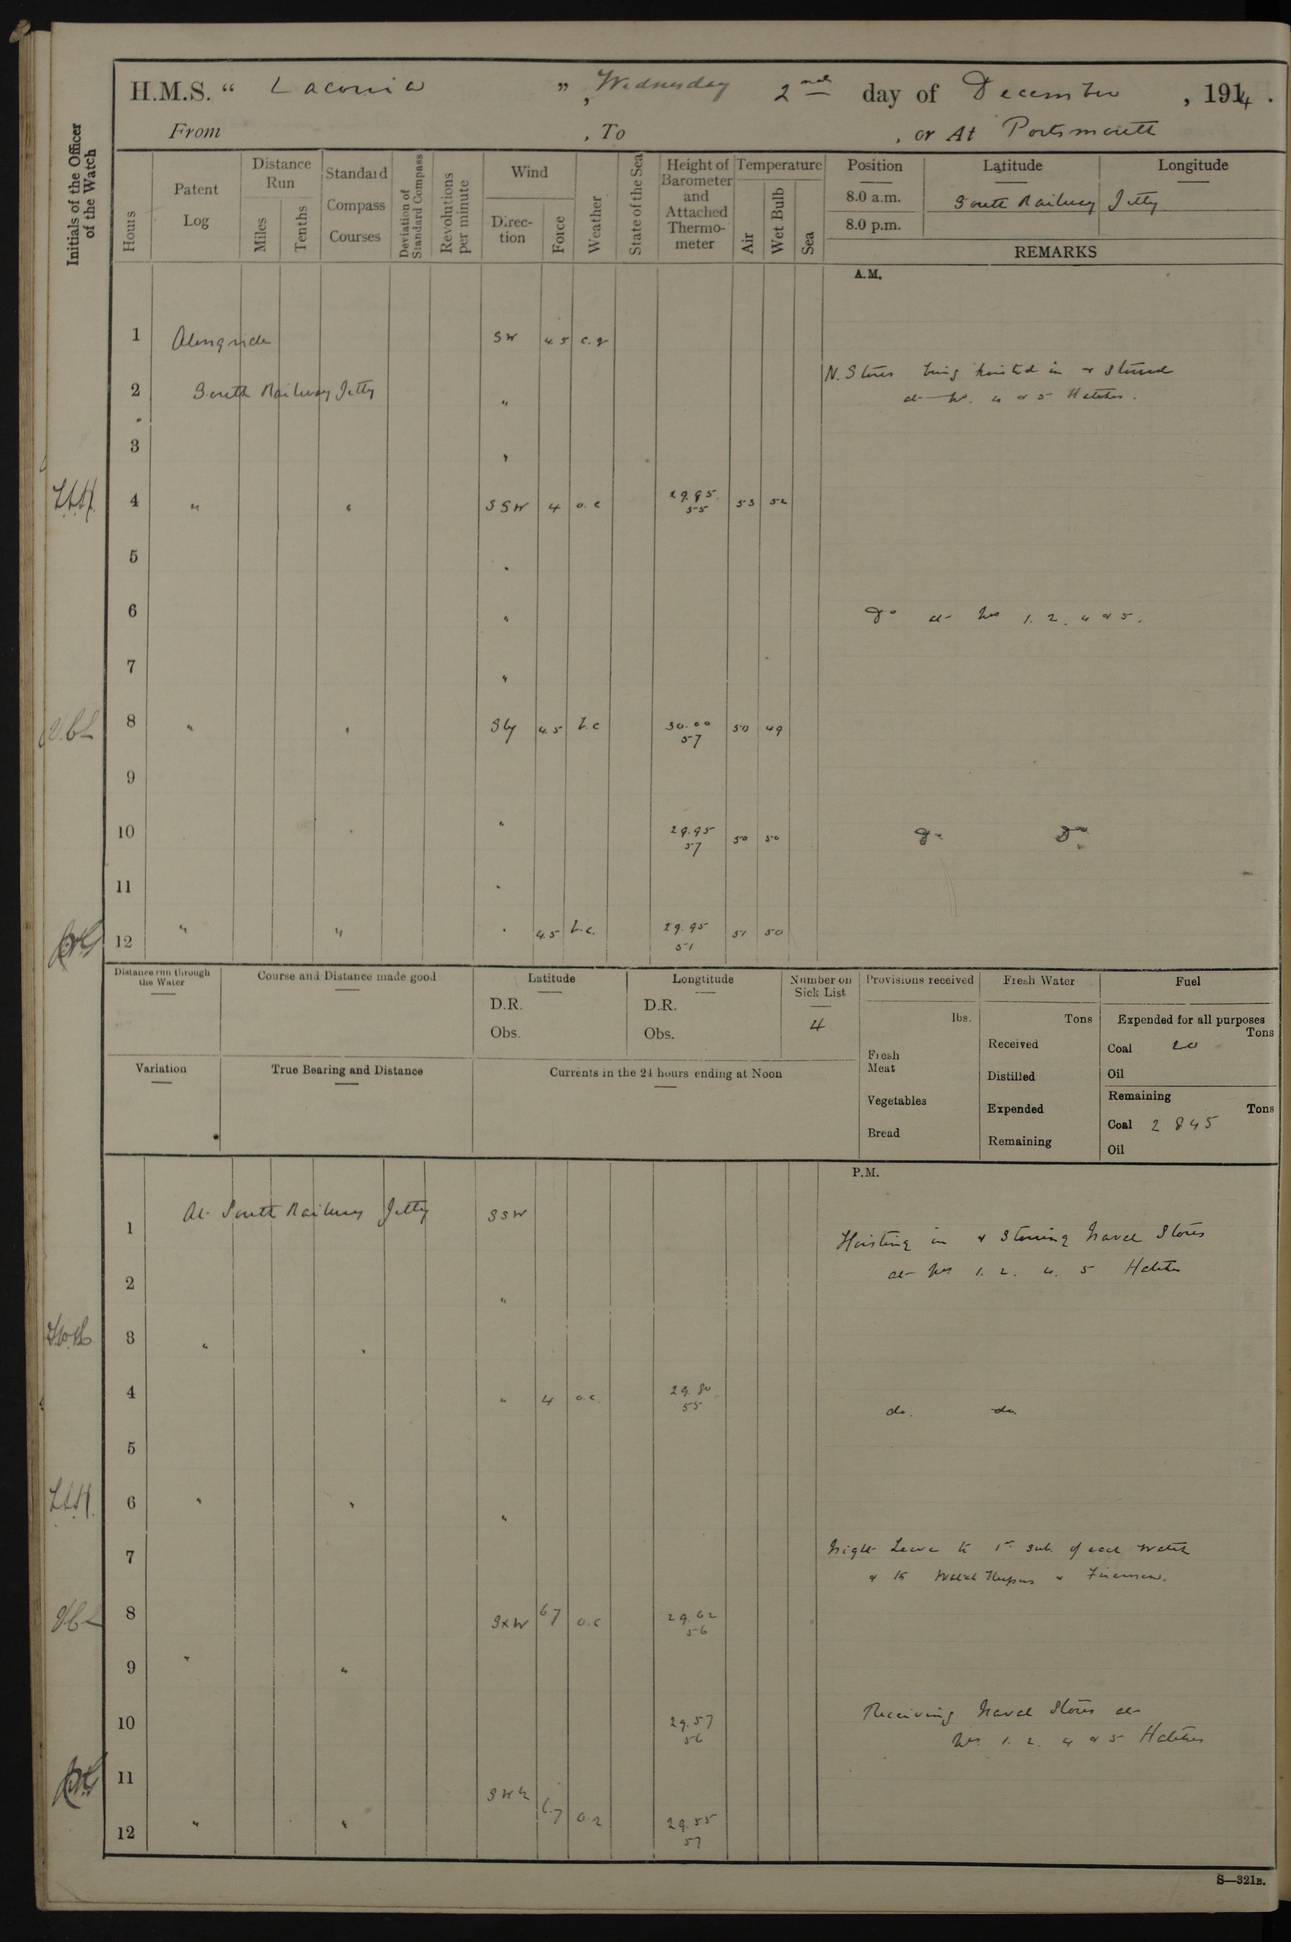 H.M.S. “ Laconia ” , Wednesday 2nd day of December , 1914 .
From , To , or At Portsmouth
Initials of the Officer of the Watch
Hours
Patent Log
Distance Run
Miles
Tenths
Standard Compass Courses
Deviation of Standard Compass
Revolutions per minute
Wind
Direc-tion
Force
Weather
State of the Sea
Height of Barometer and Attached Thermo-meter
Temperature
Air
Wet Bulb
Sea
Position Latitude Longitude
8.0 a.m. South Railway Jetty
8.0 p.m.
REMARKS
A.M.
1 Alongside SW 4.5 c.q
N. Stores being hoisted in & stowed
2 South Railway Jetty "
at No. 4 & 5 Hatches.
3 "
4 " " SSW 4 o.c 29.95 55 53 52
5 "
6 " Do at Nos 1. 2. 4 & 5.
7 "
8 " " Sly 4.5 b.c 30.00 57 50 49
9
10 " 29.95 57 50 50 Do Do
11 "
12 " " " 4.5 b.c. 29.95 51 51 50
Distance run through the Water
Course and Distance made good
Latitude
D.R.
Obs.
Longtitude
D.R.
Obs.
Number on Sick List
4
Provisions received
lbs.
Fresh Meat
Vegetables
Bread
Fresh Water
Tons
Received
Distilled
Expended
Remaining
Fuel
Expended for all purposes
Tons
Coal 20
Oil
Remaining
Tons
Coal 2845
Oil
Variation
True Bearing and Distance
Currents in the 24 hours ending at Noon
P.M.
1 At South Railway Jetty SSW
Hoisting in & Stowing Naval Stores
2 "
at Nos 1. 2. 4. 5 Hatches
3 " "
4 " 4 o.c. 29.80 55 do. do.
5
6 " " "
7 Night Leave to 1st sub. of each watch
& to Stokers & Firemen.
8 SxW 6 7 o.c 29.62 56
9 " "
10 29.57 56
Receiving Naval Stores at
Nos. 1. 2. 4 & 5 Hatches
11
12 " " 6.7 29.55 57
S—321B.